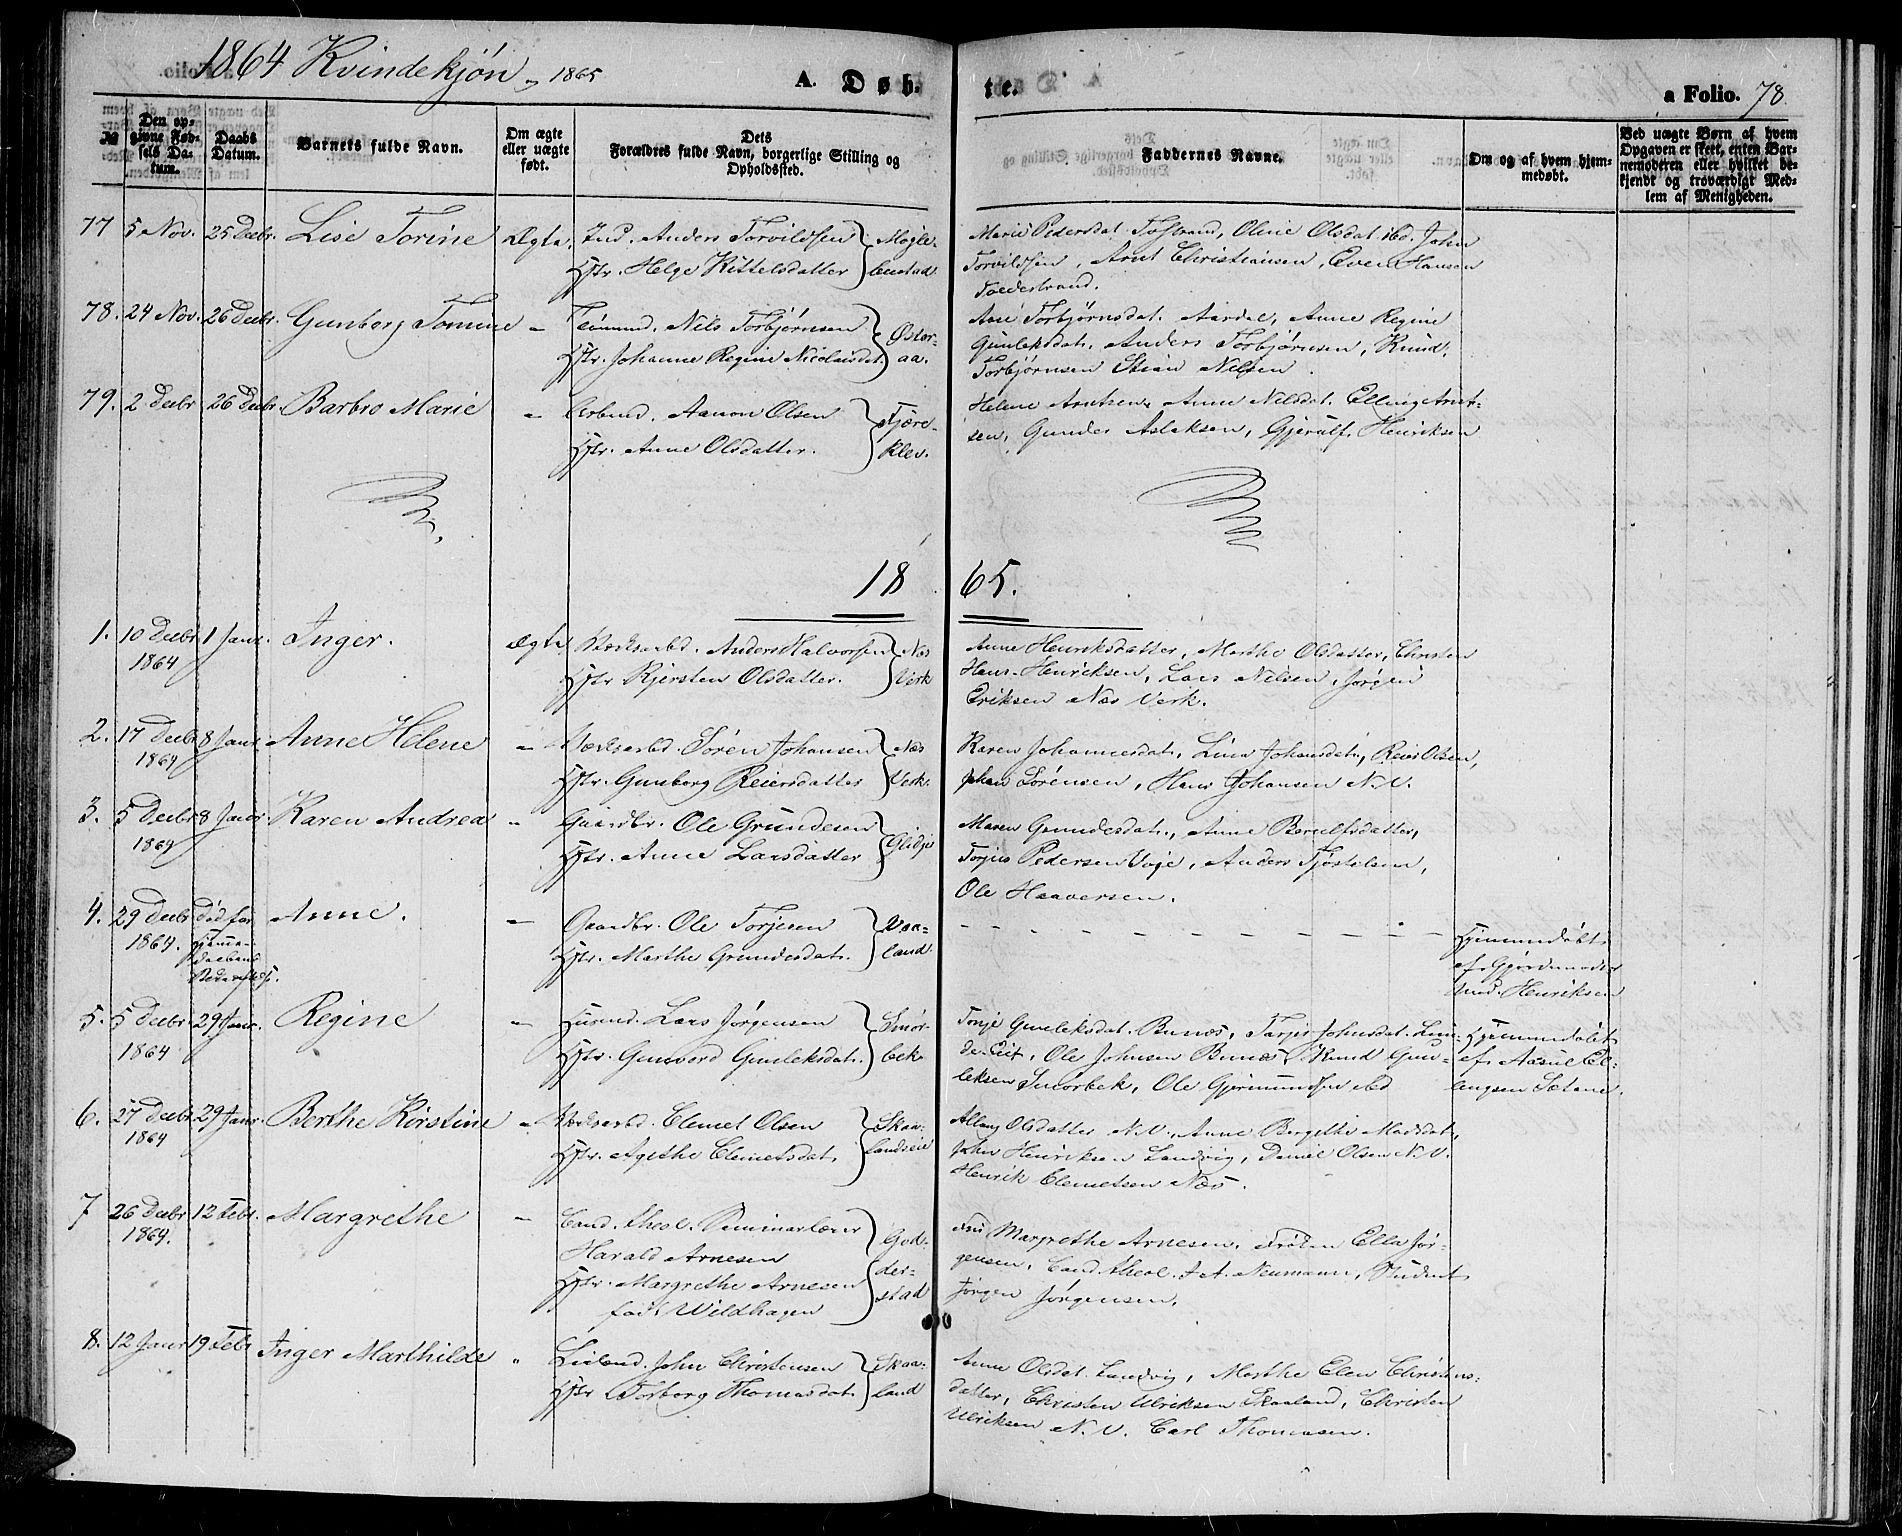 1864 Kvindekjøn, 1865
A. Døbte.
a Folio. 78
№
Den opgivne Fødsels Datum.
Daabs Datum.
Barnets fulde Navn.
Om ægte eller uægte født.
Dets Forældres fulde Navn, borgerlige Stilling og Opholdssted.
Faddernes Navne.
Om og af hvem hjemmedøbt.
Ved uægte Børn af hvem Opgaven er skeet, enten Barnemoderen eller hvilket bekjendt og troværdigt Medlem af Menigheden.
77 5 Nov. 25 Decbr. Lise Torine Ægte. Ind. Anders Torvildsen
Hstr. Helge Kittelsdatter
Marie Pedersdat. Olene Olsdat. ibd. John
Torvildsen, Arnt Christiansen, Even Hansen
78. 24 Nov. 26 Decbr. Gunborg Tomine " Nils Torbjørnsen Østeraa.
Hstr. Johanne Regine Nicolaisdat.
Ane Torbjørnsdat. Aardal, Anne Regine
Gunleksdat. Anders Torbjørnsen, Knud
Torbjørnsen Nilsen
79. 2 Decbr 26 Decbr. Barbro Marie " Aanon Olsen Fjæreklev.
Hstr. Anne Olsdatter.
Helene Arntsen, Anne Nilsdat. Elling Arntsen,
Gunder Aslaksen, Gjerulf Henriksen
1865.
1. 10 Decbr 1864 1 Janr. Inger. Ægte Værksarbd. Anders Halvorsen Næs Verk
Hstr Kjersten Olsdatter.
Anne Henriksdatter, Marthe Olsdatter, Christen
Hans Henriksen, Lars Nilsen, Jørgen
Eriksen Næs Verk.
2. 17 Decbr 1864 8 Janr. Anne Helene " Værksarbd. Søren Johansen Næs Verk.
Hstr. Gunborg Reiersdatter
Karen Johannesdat, Line Johansdat, Reier Olsen,
Johan Sørensen, Hans Johansen N.V.
3. 5 Decbr 1864 8 Janr. Karen Andrea " Gaardbr. Ole Grundesen Glidje
Hstr. Anne Larsdatter
Maren Grundesdat., Anne Berulfsdatter,
Torjus Pedersen Voje, Anders Tjøstelsen,
Ole Haaversen.
4. 29 Decbr 1864. Død før Anne. " Gaardbr. Ole Torjesen Vaaland.
Hstr. Marthe Grundesdat.
Hjemmedøbt
af Gjordemoder
Henriksen
5. 5 Decbr 1864 29 Janr. Regine " Lars Jørgensen Smørbek
Hstr. Gunvord Gunleksdat.
Tonje Gunleksdat. Bunæs, Tarjer Johnsdat.
Ole Johnsen Bunæs, Knud Gunleksen
Smørbek, Ole Gjermundsen ibd
Hjemmedøbt
af Aasul Ellengsen Sætane.
6. 27 Decbr 1864 29 Janr. Berthe Kirstine " Værksarbd. Clemet Olsen Skaalandseie
Hstr. Agethe Clemetsdat.
Olsdatter N.V., Anne Bergithe Madsdat,
John Henriksen Landvig, Daniel Olsen N.V.
Henrik Clemetsen Næs.
7 26 Decbr 1864. 12 Febr. Margrethe " Cand. theol. Seminarlærer Godderstad
Harald Arnesen
Hstr. Margrethe Arnesen
født Wildhagen
Fru Margrethe Arnesen, Frøken Ella Jørgensen,
Cand. theol. J. A. Neumann, Student
Jørgen Jørgensen.
8. 12 Janr 19 Febr Inger Marthilde " John Christensen Skaaland
Hstr Torborg Thomasdat.
Anne Olsdat. Landvig, Marthe Elen Christensdatter,
Christen Ulriksen Skaaland, Christen
Ulriksen N.V. Carl Thomassen.